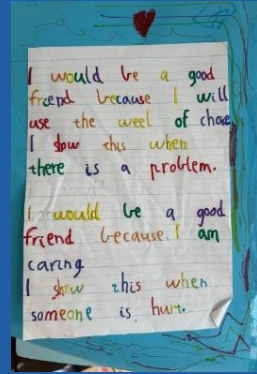 I would be a good
friend because I will
use the weel of chose
I show this when
there is a problem.
I would be a good
friend because. I am
caring.
I show this when
someone is hurt.